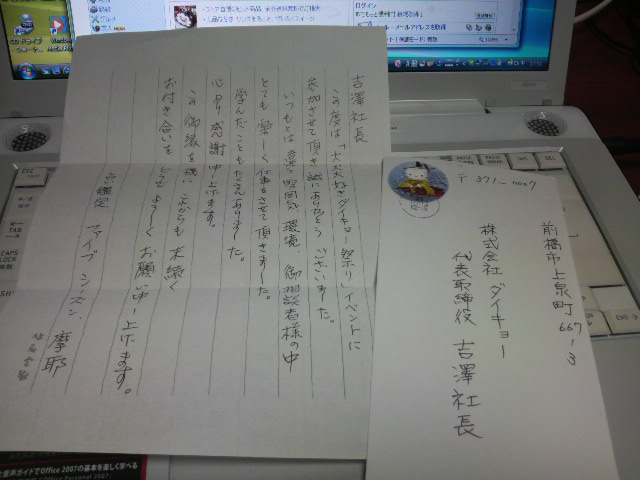 吉澤社長
この度は「大大大好きダイキョー祭り」イベントに
参加させて頂き誠にありがとうございました。
いつもとは違う雰囲気、環境、御相談者様の中
とても楽しく仕事をさせて頂きました。
学んだこともたくさんありました。
心より感謝申し上げます。
この御縁を機にこれからも末続く
お付き合いをどうぞよろしくお願い申し上げます。
ファイブシーズン 摩耶
〒371-0007
前橋市上泉町667-3
株式会社ダイキョー
代表取締役 吉澤社長
ログイン
メールアドレスを取得
ESC
TAB
CAPS
LOCK
END
DEL
音声ガイドでOffice 2007の基本を楽しく学べる